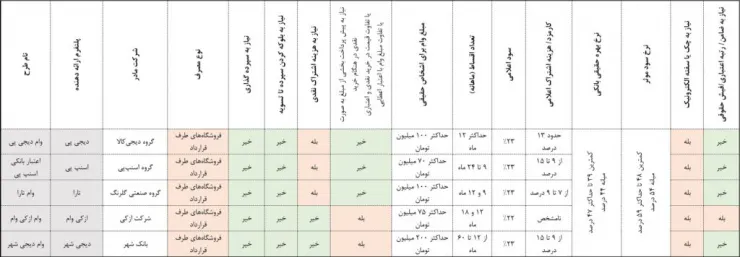 نام طرح
پلتفرم ارائه دهنده
شرکت مادر
نوع مصرف
نیاز به سپرده گذاری
نیاز به بلوکه کردن سپرده تا تسویه
نیاز به هزینه اشتراک نقدی
نیاز به پیش پرداخت بخشی از مبلغ به صورت
نقدی در هنگام خرید
یا تفاوت قیمت در خرید نقدی و اعتباری
یا تفاوت مبلغ وام با اعتبار اعطایی
مبلغ وام برای اشخاص حقیقی
تعداد اقساط (ماهانه)
سود اعلامی
کارمزد/ هزینه اشتراک اعلامی
نرخ بهره حقیقی بانکی
نرخ سود موثر
نیاز به چک یا سفته الکترونیک
نیاز به ضامن/ رتبه اعتباری/فیش حقوقی
وام دیجی پی
دیجی پی
گروه دیجی‌کالا
فروشگاه‌های طرف
قرارداد
خیر
خیر
بله
خیر
حداکثر ۱۰۰ میلیون
تومان
حداکثر ۱۲
ماه
۲۳٪
حدود ۱۳
درصد
کمترین ۳۹ تا حداکثر ۴۷ درصد
میانه ۴۴ درصد
کمترین ۴۸ تا حداکثر ۵۹ درصد
میانه ۵۴ درصد
بله
خیر
اعتبار بانکی
اسنپ پی
اسنپ پی
گروه اسنپ‌پی
فروشگاه‌های طرف
قرارداد
خیر
خیر
بله
خیر
حداکثر ۷۰ میلیون
تومان
۹ تا ۲۴ ماه
۲۳٪
از ۹ تا ۱۵
درصد
بله
خیر
وام تارا
تارا
گروه صنعتی گلرنگ
فروشگاه‌های طرف
قرارداد
خیر
خیر
بله
خیر
حداکثر ۱۰۰ میلیون
تومان
۹ و ۱۲ ماه
۲۳٪
از ۷ تا ۹ درصد
بله
خیر
وام ازکی وام
ازکی وام
شرکت ازکی
فروشگاه‌های طرف
قرارداد
خیر
خیر
خیر
بله
حداکثر ۷۵ میلیون
تومان
۱۲ و ۱۸
ماه
۲۲٪
نامشخص
بله
بله
وام دیجی شهر
دیجی شهر
بانک شهر
فروشگاه‌های طرف
قرارداد
خیر
خیر
خیر
بله
حداکثر ۲۰۰ میلیون
تومان
از ۱۲ تا ۶۰
ماه
۲۳٪
از ۹ تا ۱۵
درصد
بله
خیر